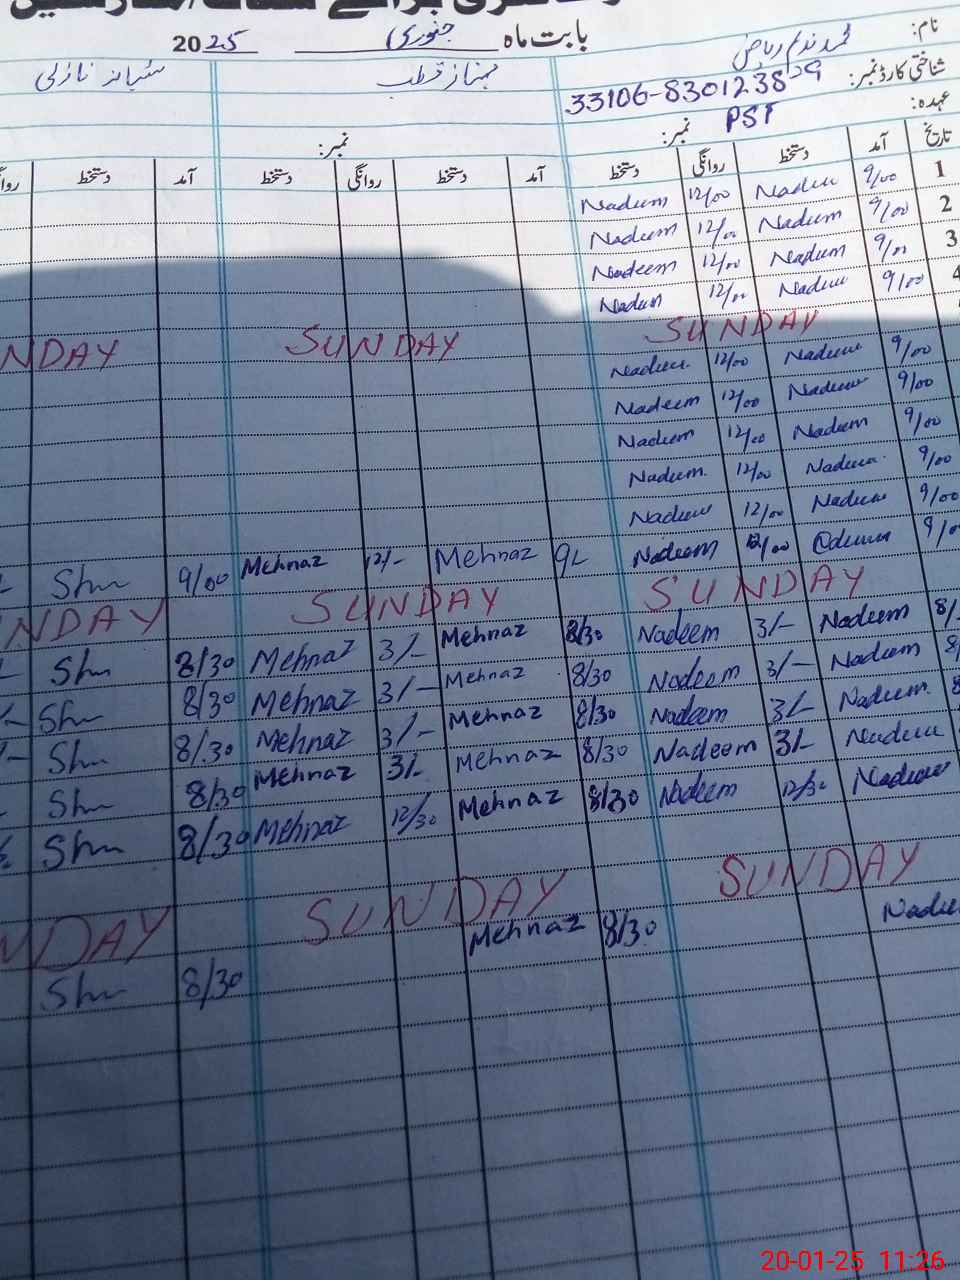 بابت ماہ جنوری 2025
نام: محمد ندیم ریاض
مہناز قطب
شناختی کارڈ نمبر: 33106-8301238
عہدہ: PST نمبر:
نمبر:
تاریخ آمد دستخط روانگی دستخط آمد دستخط روانگی دستخط آمد دستخط
1 9/00 Nadeem 12/00 Nadeem
2 9/00 Nadeem 12/00 Nadeem
3 9/00 Nadeem 12/00 Nadeem
4 9/00 Nadeem 12/00 Nadeem
SUNDAY SUNDAY NDAY
9/00 Nadeem 12/00 Nadeem
9/00 Nadeem 12/00 Nadeem
9/00 Nadeem 12/00 Nadeem
9/00 Nadeem 12/00 Nadeem
9/00 Nadeem 12/00 Nadeem
9/00 12/00 Nadeem Mehnaz 12/- Mehnaz 9/00
SUNDAY SUNDAY NDAY
Nadeem 3/- Nadeem 8/30 Mehnaz 3/- Mehnaz 8/30
Nadeem 3/- Nadeem 8/30 Mehnaz 3/- Mehnaz 8/30
Nadeem 3/- Nadeem 8/30 Mehnaz 3/- Mehnaz 8/30
Nadeem 3/- Nadeem 8/30 Mehnaz 3/- Mehnaz 8/30
Nadeem 12/30 Nadeem 8/30 Mehnaz 12/30 Mehnaz 8/30
SUNDAY SUNDAY NDAY
8/30 Mehnaz 8/30
20-01-25 11:26